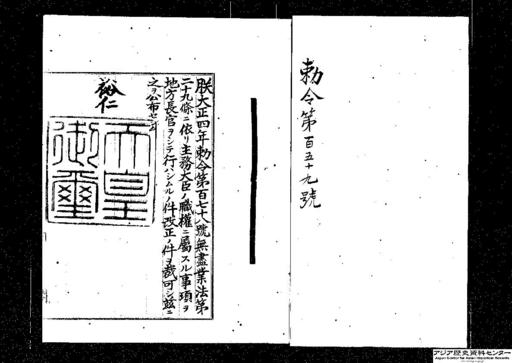 勅令第百五十九號
朕大正四年勅令第百七十八號無盡業法第
二十九條ニ依リ主務大臣ノ職權ニ屬スル事項ヲ
地方長官ヲシテ行ハシムルノ件改正ノ件ヲ裁可シ茲ニ
之ヲ公布セシム
裕仁
天皇
御璽
アジア歴史資料センター
Japan Center for Asian Historical Records